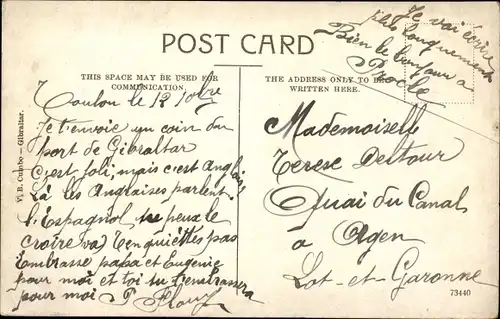 Je vai écrire
plus longuement
Bien le bonjour a
POST CARD
THIS SPACE MAY BE USED FOR
COMMUNICATION.
THE ADDRESS ONLY TO BE
WRITTEN HERE.
V. B. Cumbo - Gibraltar.
Toulon le 12 10bre
Je t'envoie un coin du
port de Gibraltar
c'est joli, mais c'est Anglais
Là les Anglaises parlent
l'Espagnol tu peux le
croire va) T'enquiettes pas
Embrasse papa et Eugenie
pour moi et toi tu t'embrassera
pour moi P
Mademoiselle
Terese Deltour
Quai du Canal
a Agen
Lot-et-Garonne
73440